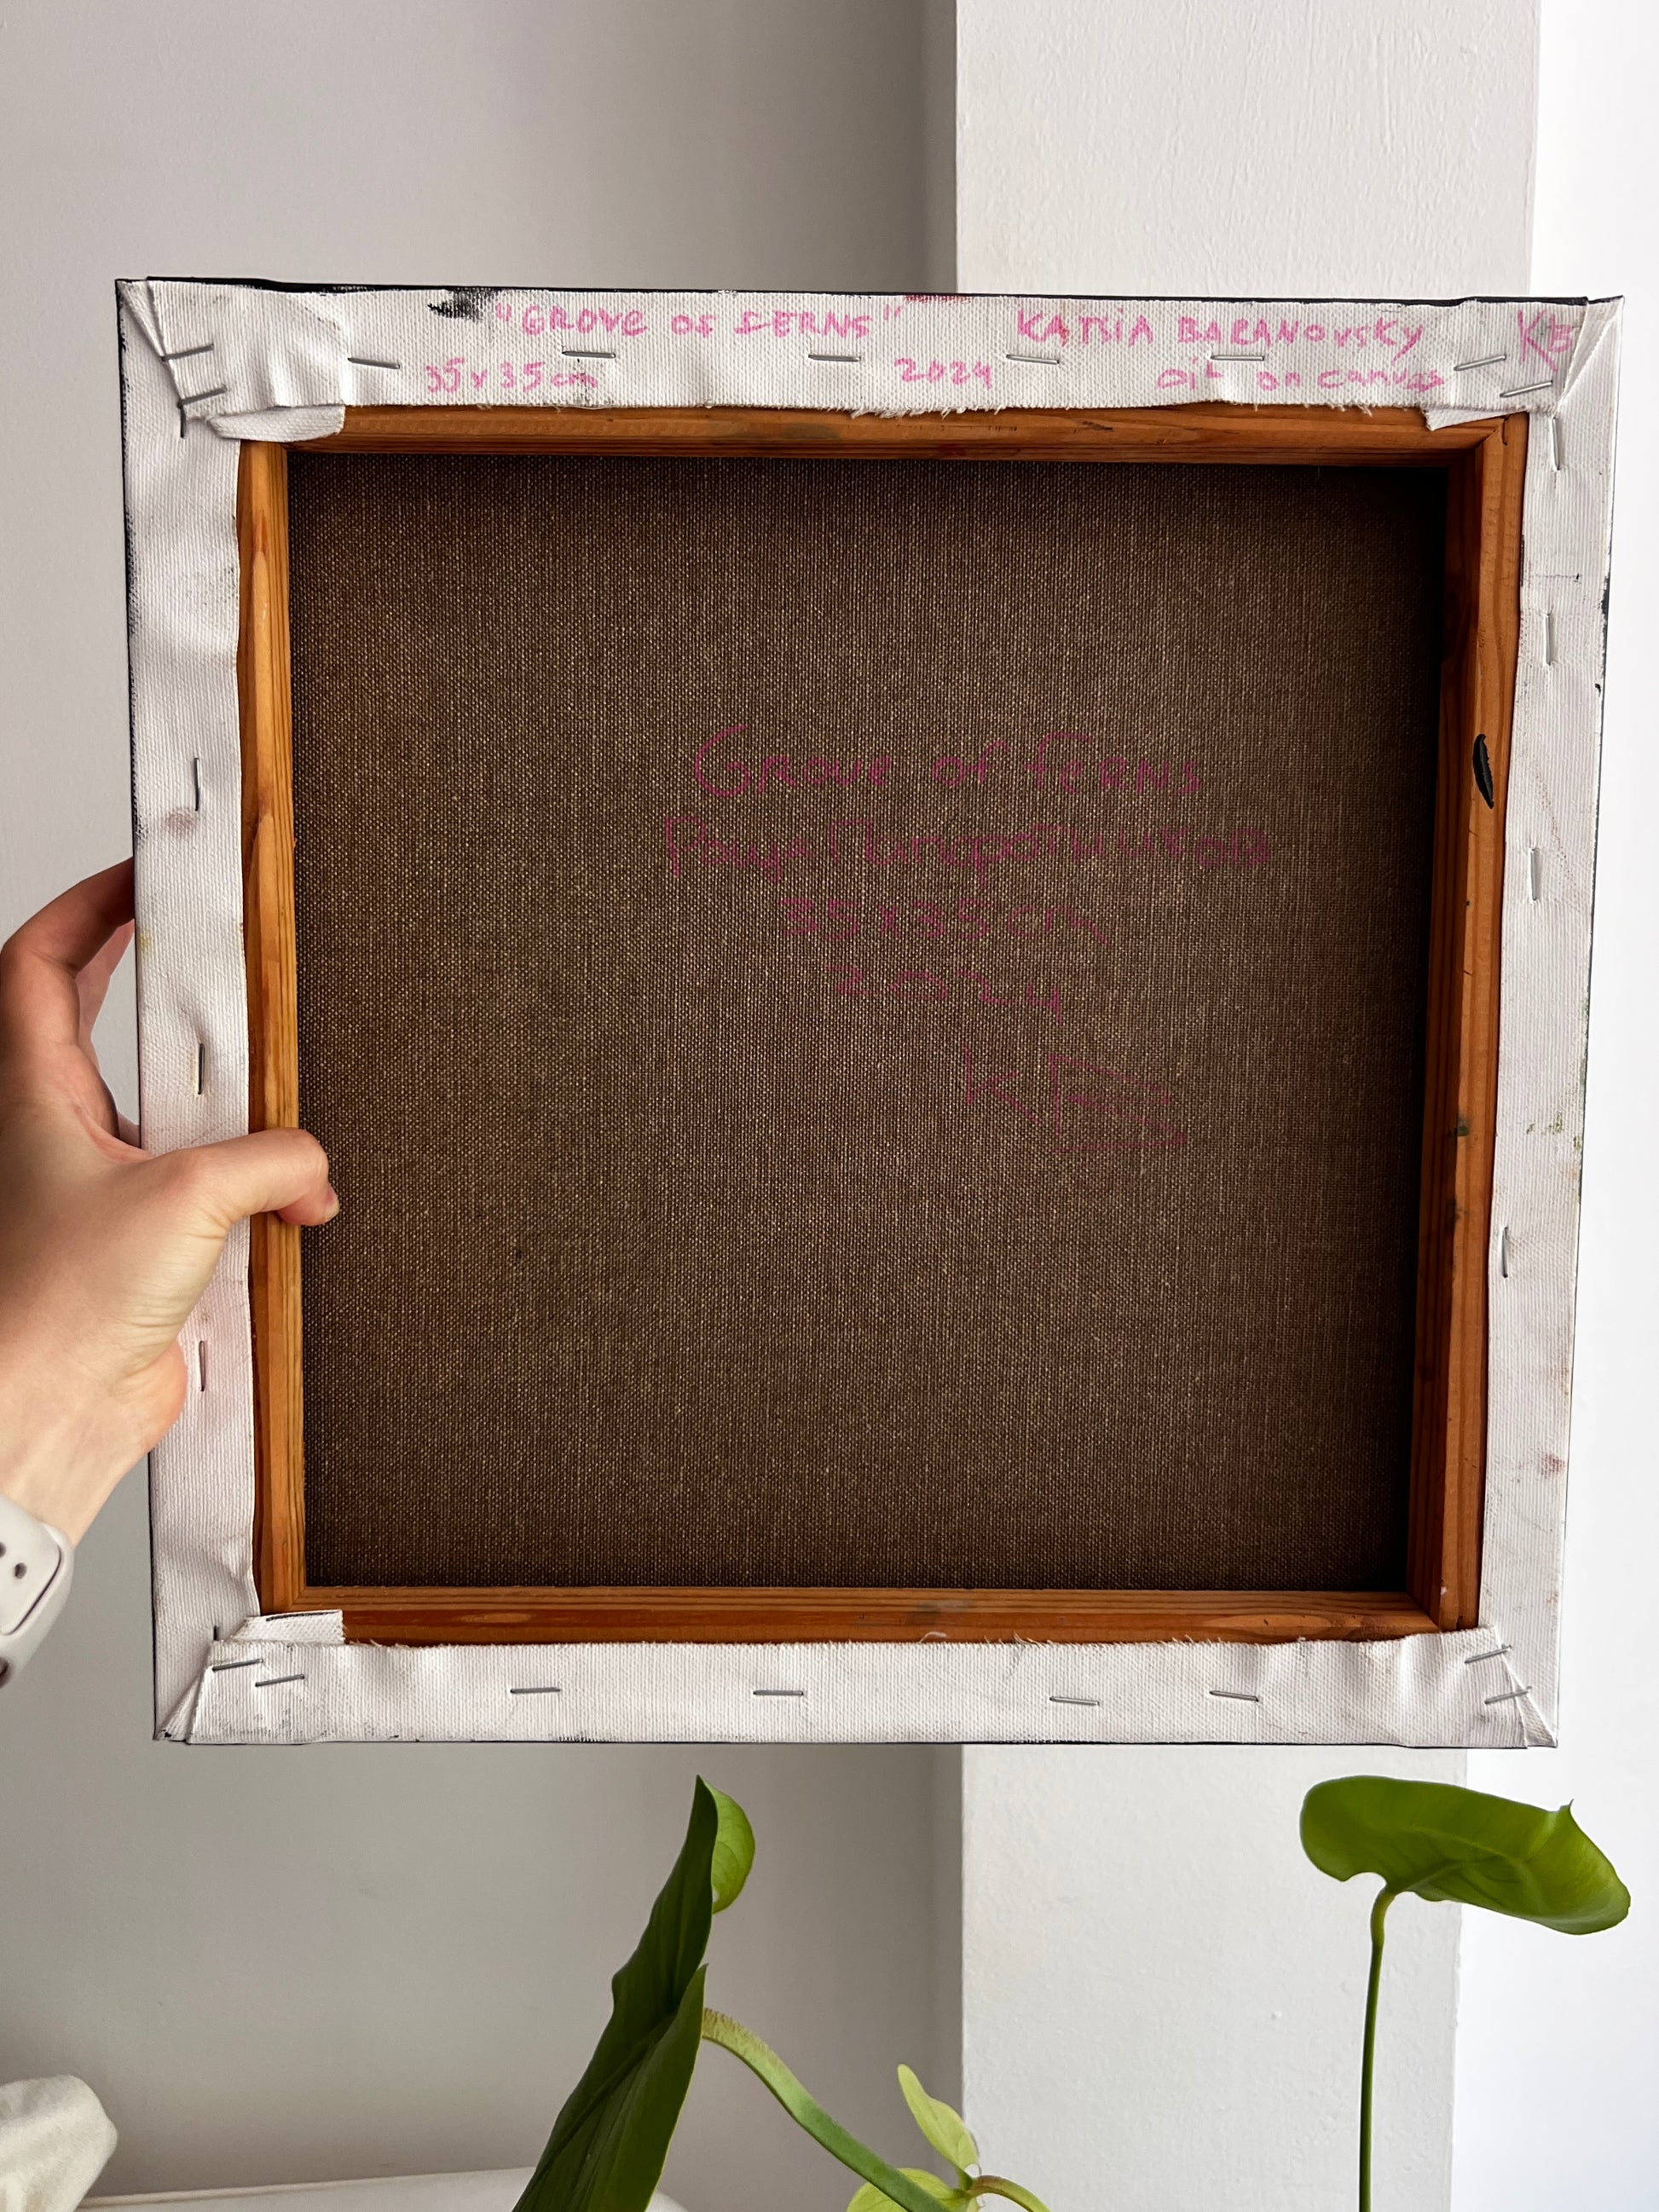 "GROVE OF FERNS" KATSIA BARANOVSKY KB
35x35cm 2024 oil on canvas
Grove of ferns
Роща Папоротников
35x35cm
2024
KB